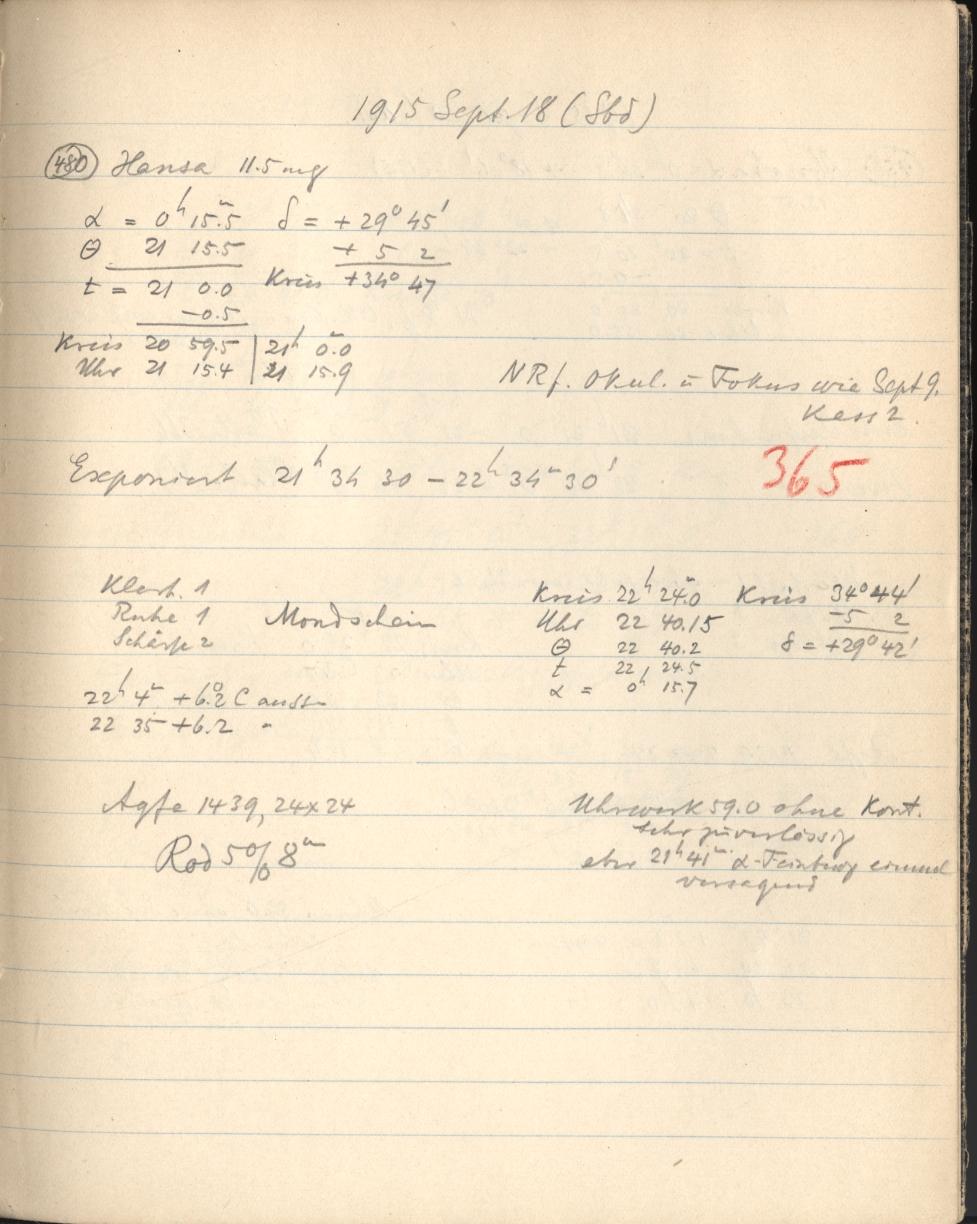 1915 Sept. 18 (Sbd)
480 Hansa 11.5 mg
α = 0ʰ 15.ᵐ5 δ = +29° 45'
θ 21 15.5 + 5 2
t = 21 0.0 Kreis +34° 47
−0.5
Kreis 20 59.5 | 21ʰ 0.ᵐ0
Uhr 21 15.4 | 21 15.9
NRf. Okul. u Fokus wie Sept 9.
Kass 2.
Exponiert 21ʰ 34 30 − 22ʰ 34ᵐ 30ˢ
365
Klarh. 1
Ruhe 1 Mondschein
Schärfe 2
Kreis 22ʰ 24.ᵐ0 Kreis 34° 44'
Uhr 22 40.15 −5 2
θ 22 40.2 δ = +29° 42'
t 22 24.5
α = 0ʰ 15.7
22ʰ 4ᵐ +6.°2 C aussen
22 35 +6.2 "
Agfa 1439, 24×24
Rod 5% 8ᵐ
Uhrwerk 59.0 ohne Kont.
sehr zuverlässig
aber 21ʰ 41ᵐ α-Feinbwg einmal
versagend